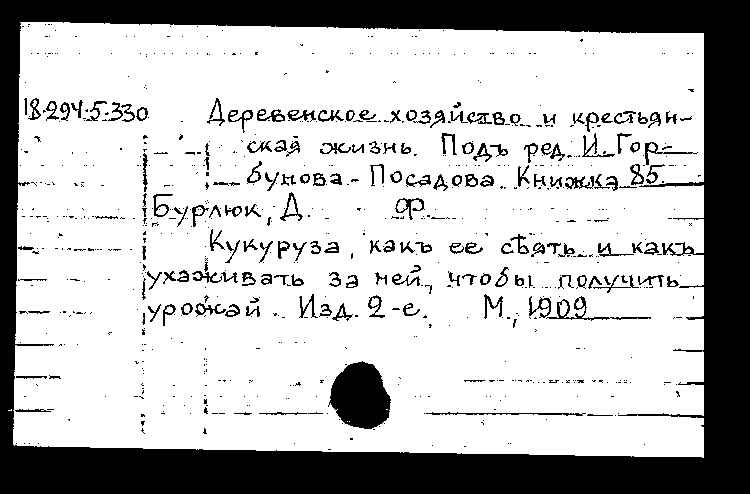 18.294.5.330 Деревенское хозяйство и крестьян-
ская жизнь. Подъ ред. И. Гор-
бунова-Посадова. Книжка 85.
Бурлюк, Д. Ф.
Кукуруза, какъ ее сѣять и какъ
ухаживать за ней, чтобы получить
урожай. Изд. 2-е. М., 1909